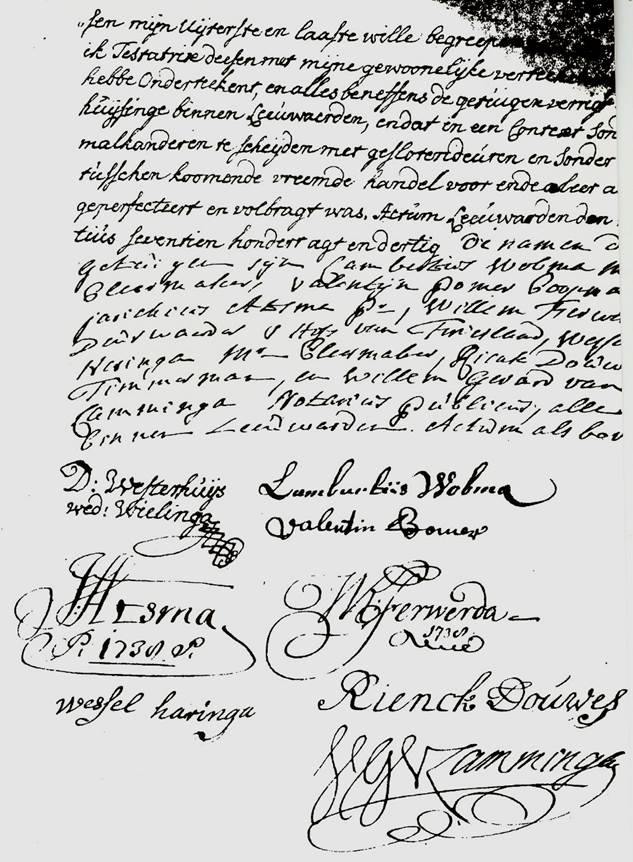 sen mijn Uijterste en laaste wille begreepen
ik Testatrix deesen met mijne gewoonelijke
hebbe Ondertekent, en alles beneffens de getúijgen
húijsinge binnen Leeúwaerden, en dat in een Context Son
malkanderen te scheijden met geslotendeúren en Sonder
tússchen koomende vreemde handel voor ende aleer a
geperfecteert en volbragt was. Actúm Leeúwarden den
tiús seventien hondert agt en dertig De namen
getúijgen sijn Lambertus Wobma
Cleermaker, Valentijn Bomer Coopma
Atsma Pr, Willem
Deurwaarder 's Hofs van Frieslandt, Wessel
Haringa Mr Cleermaker, Rienk Douw
Timmerman, en Willem Gerard van
Camminga Notarius Públicús, alle
binnen Leeúwarden. Actúm als bov
D: Westerhuijs Lambertús Wobma
wed: Wielinga Valentin Bomer
Atsma Ferwerda
Pr. 1738 1738
Wessel haringa Rienck Doúwes
WGV Camminga